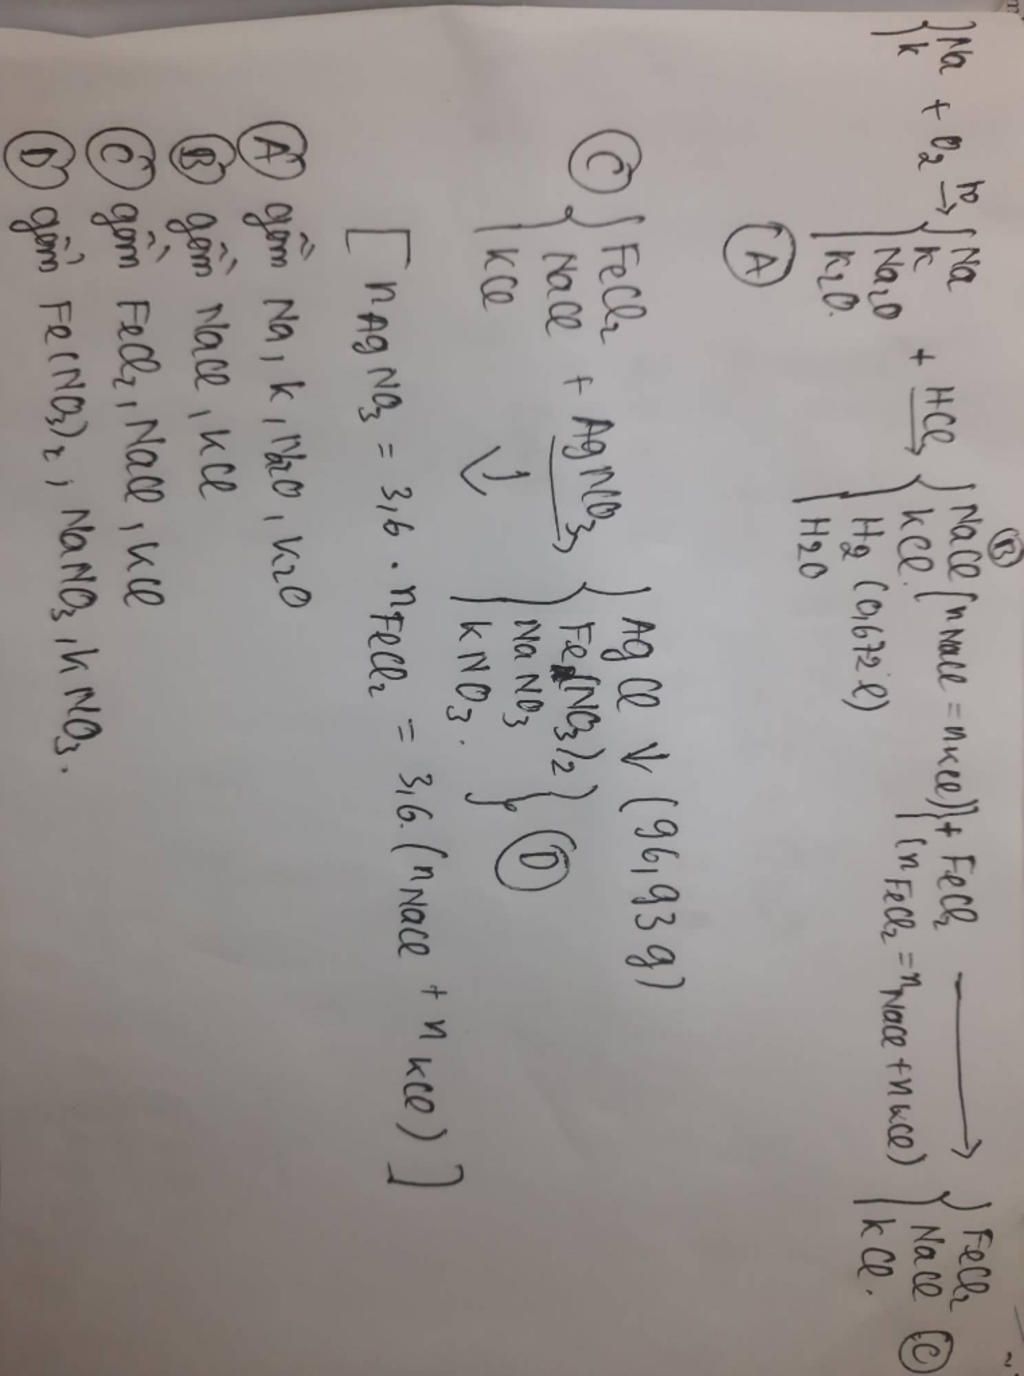 {Na
K + O2 t° → {Na
K
Na2O
K2O. + HCl → {NaCl (nNaCl = nKCl)
KCl.
H2 (0,672 l)
H2O } + FeCl2 → {FeCl2
NaCl
KCl.
(nFeCl2 = nNaCl + nKCl)
(A) (B) (C)
(C) {FeCl2
NaCl
KCl + AgNO3 → {AgCl ↓ (96,93 g)
Fe(NO3)2
NaNO3
KNO3. } (D)
↓
[nAgNO3 = 3,6 . nFeCl2 = 3,6. (nNaCl + nKCl)]
(A) gồm Na, K, Na2O, K2O
(B) gồm NaCl, KCl
(C) gồm FeCl2, NaCl, KCl
(D) gồm Fe(NO3)2, NaNO3, KNO3.